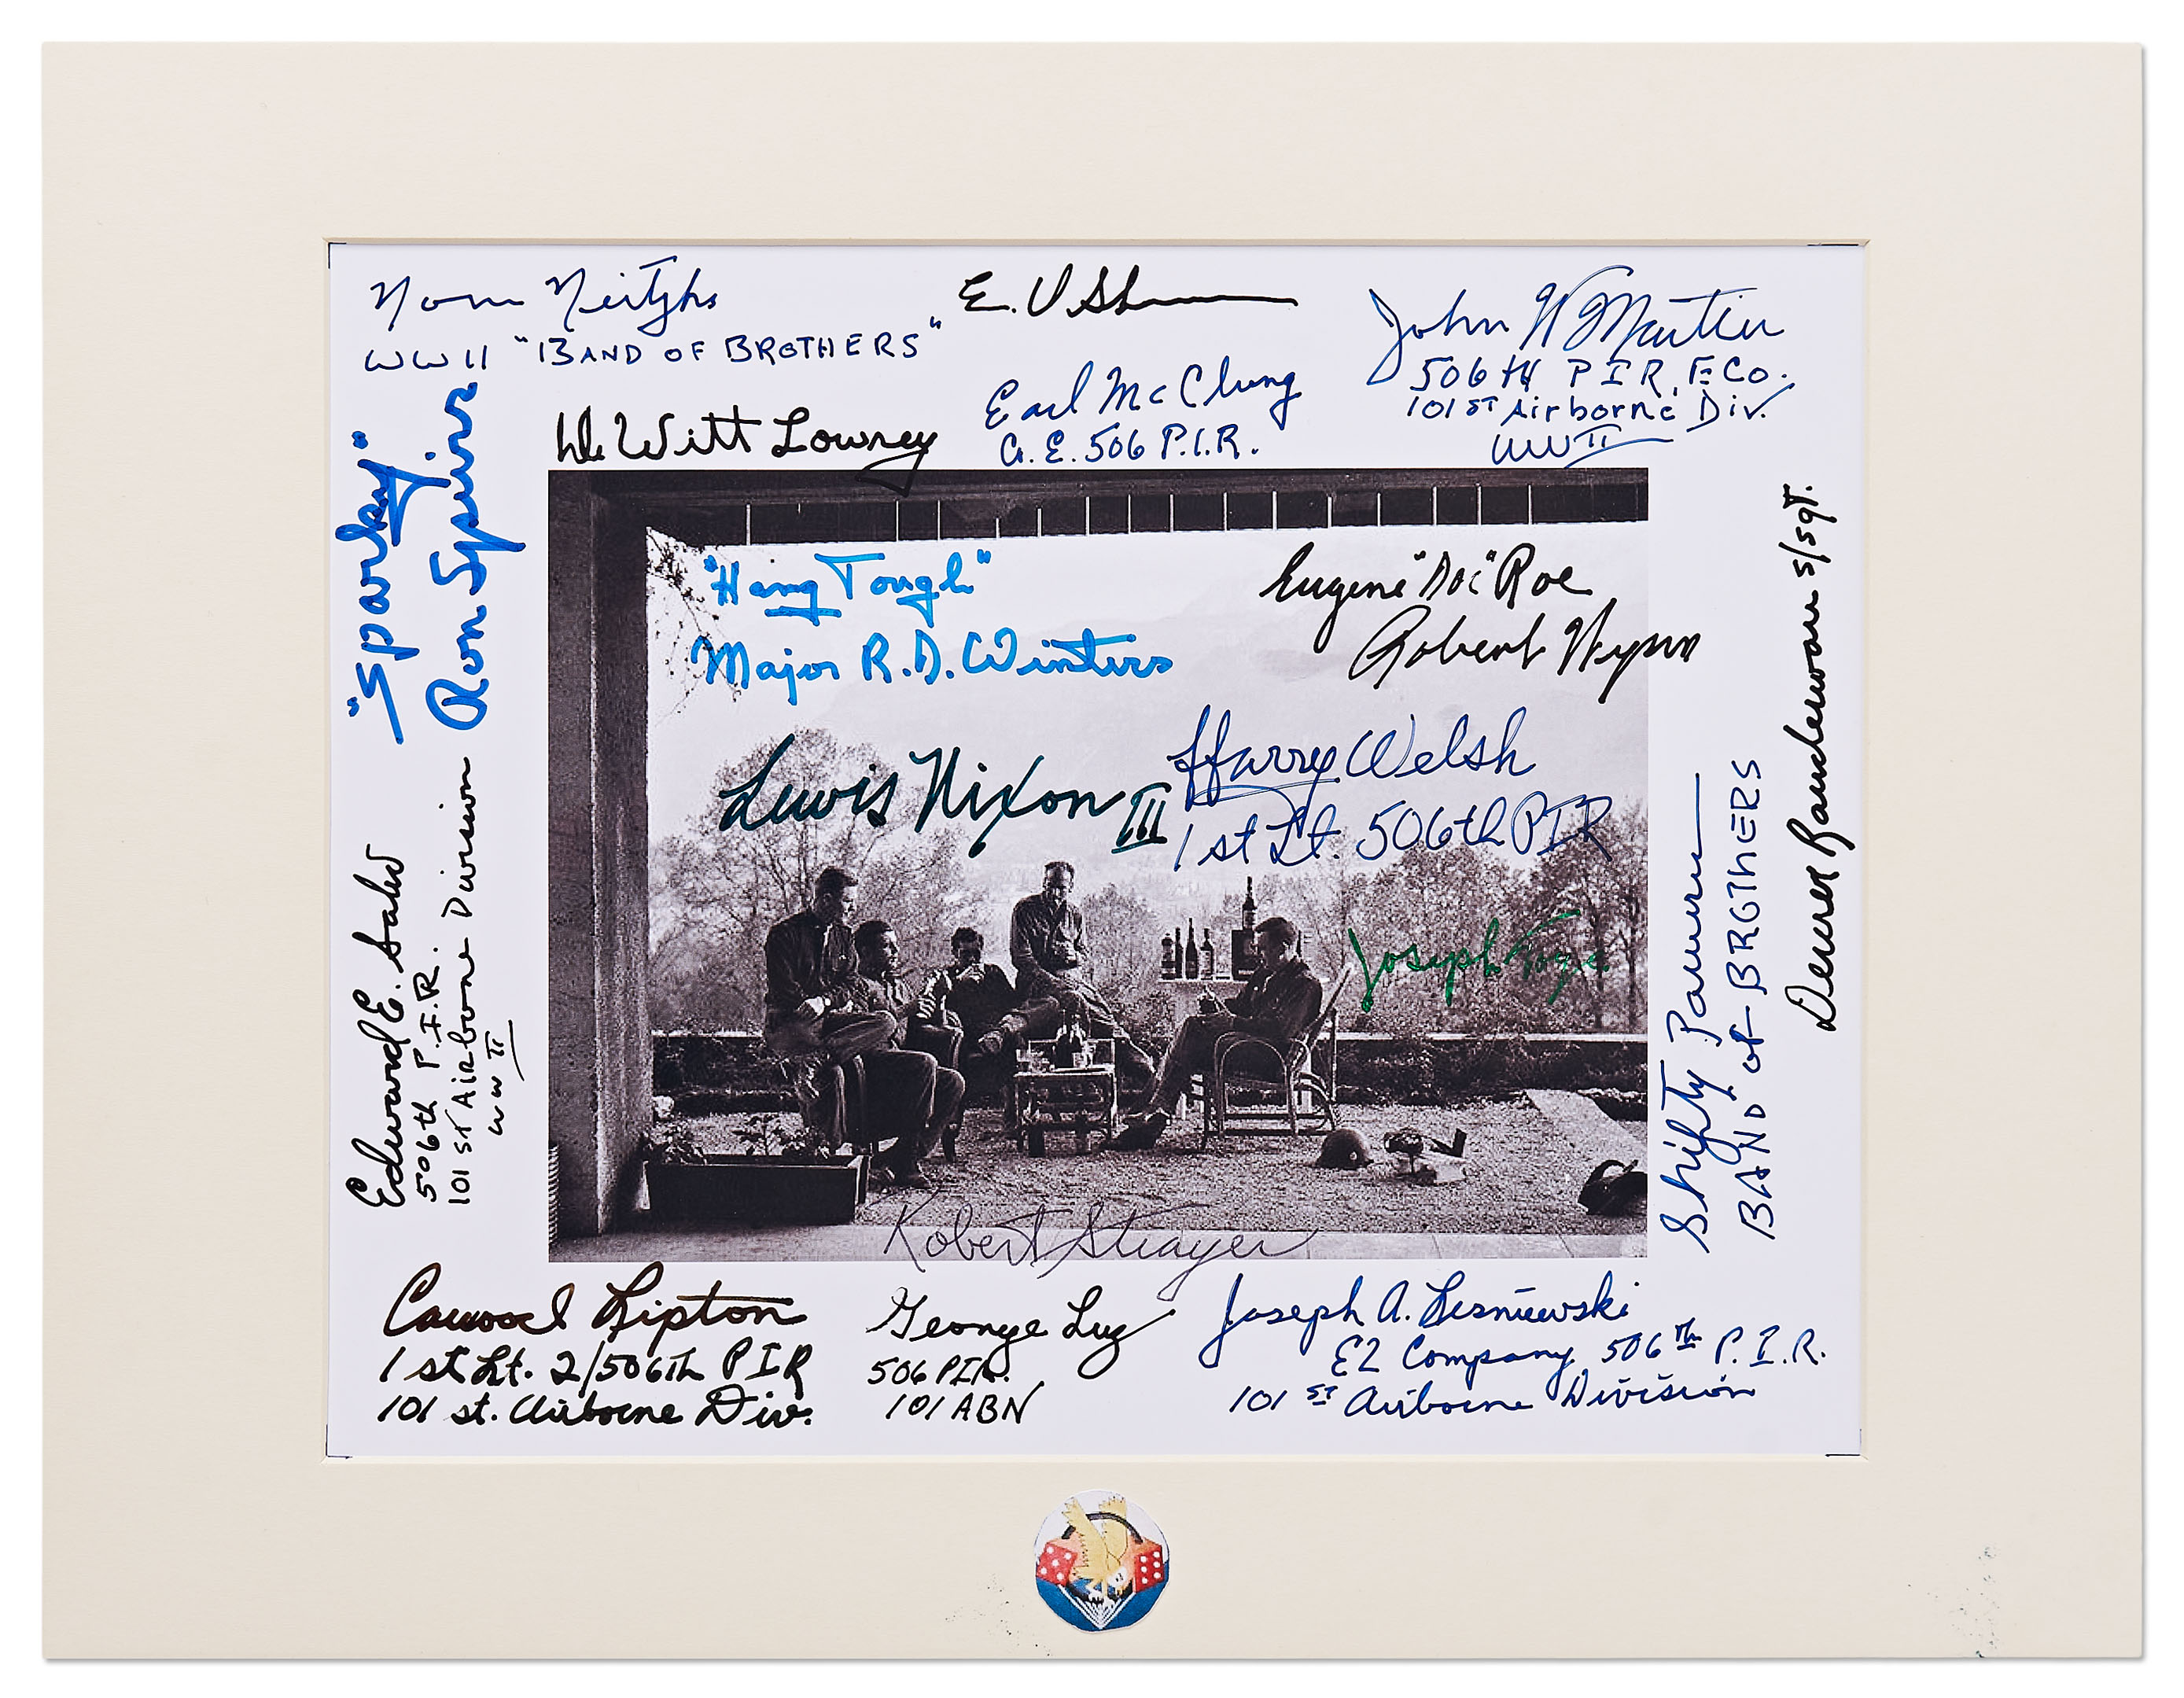 Norm Neitzke
WW II "BAND OF BROTHERS"
E. V Sh
John W Martin
506 TH PIR, E Co.
101 ST Airborne Div.
WW II
Earl McClung
Co. E. 506 P.I.R.
DeWitt Lowrey
"Sparky"
Ron Speirs
"Hang Tough"
Major R.D. Winters
Eugene "Doc" Roe
Robert Wynn
Lewis Nixon III
Harry Welsh
1st Lt. 506th PIR
Joseph Toye
Edward E.
506th P.I.R.
101 st Airborne Division
WW II
Shifty Powers
BAND of BROTHERS
S/Sgt.
Robert Strayer
Carwood Lipton
1st Lt. 2/506th PIR
101 st. Airborne Div.
George Luz
506 PIR.
101 ABN
Joseph A. Lesniewski
E2 Company 506 Th P.I.R.
101 ST Airborne Division